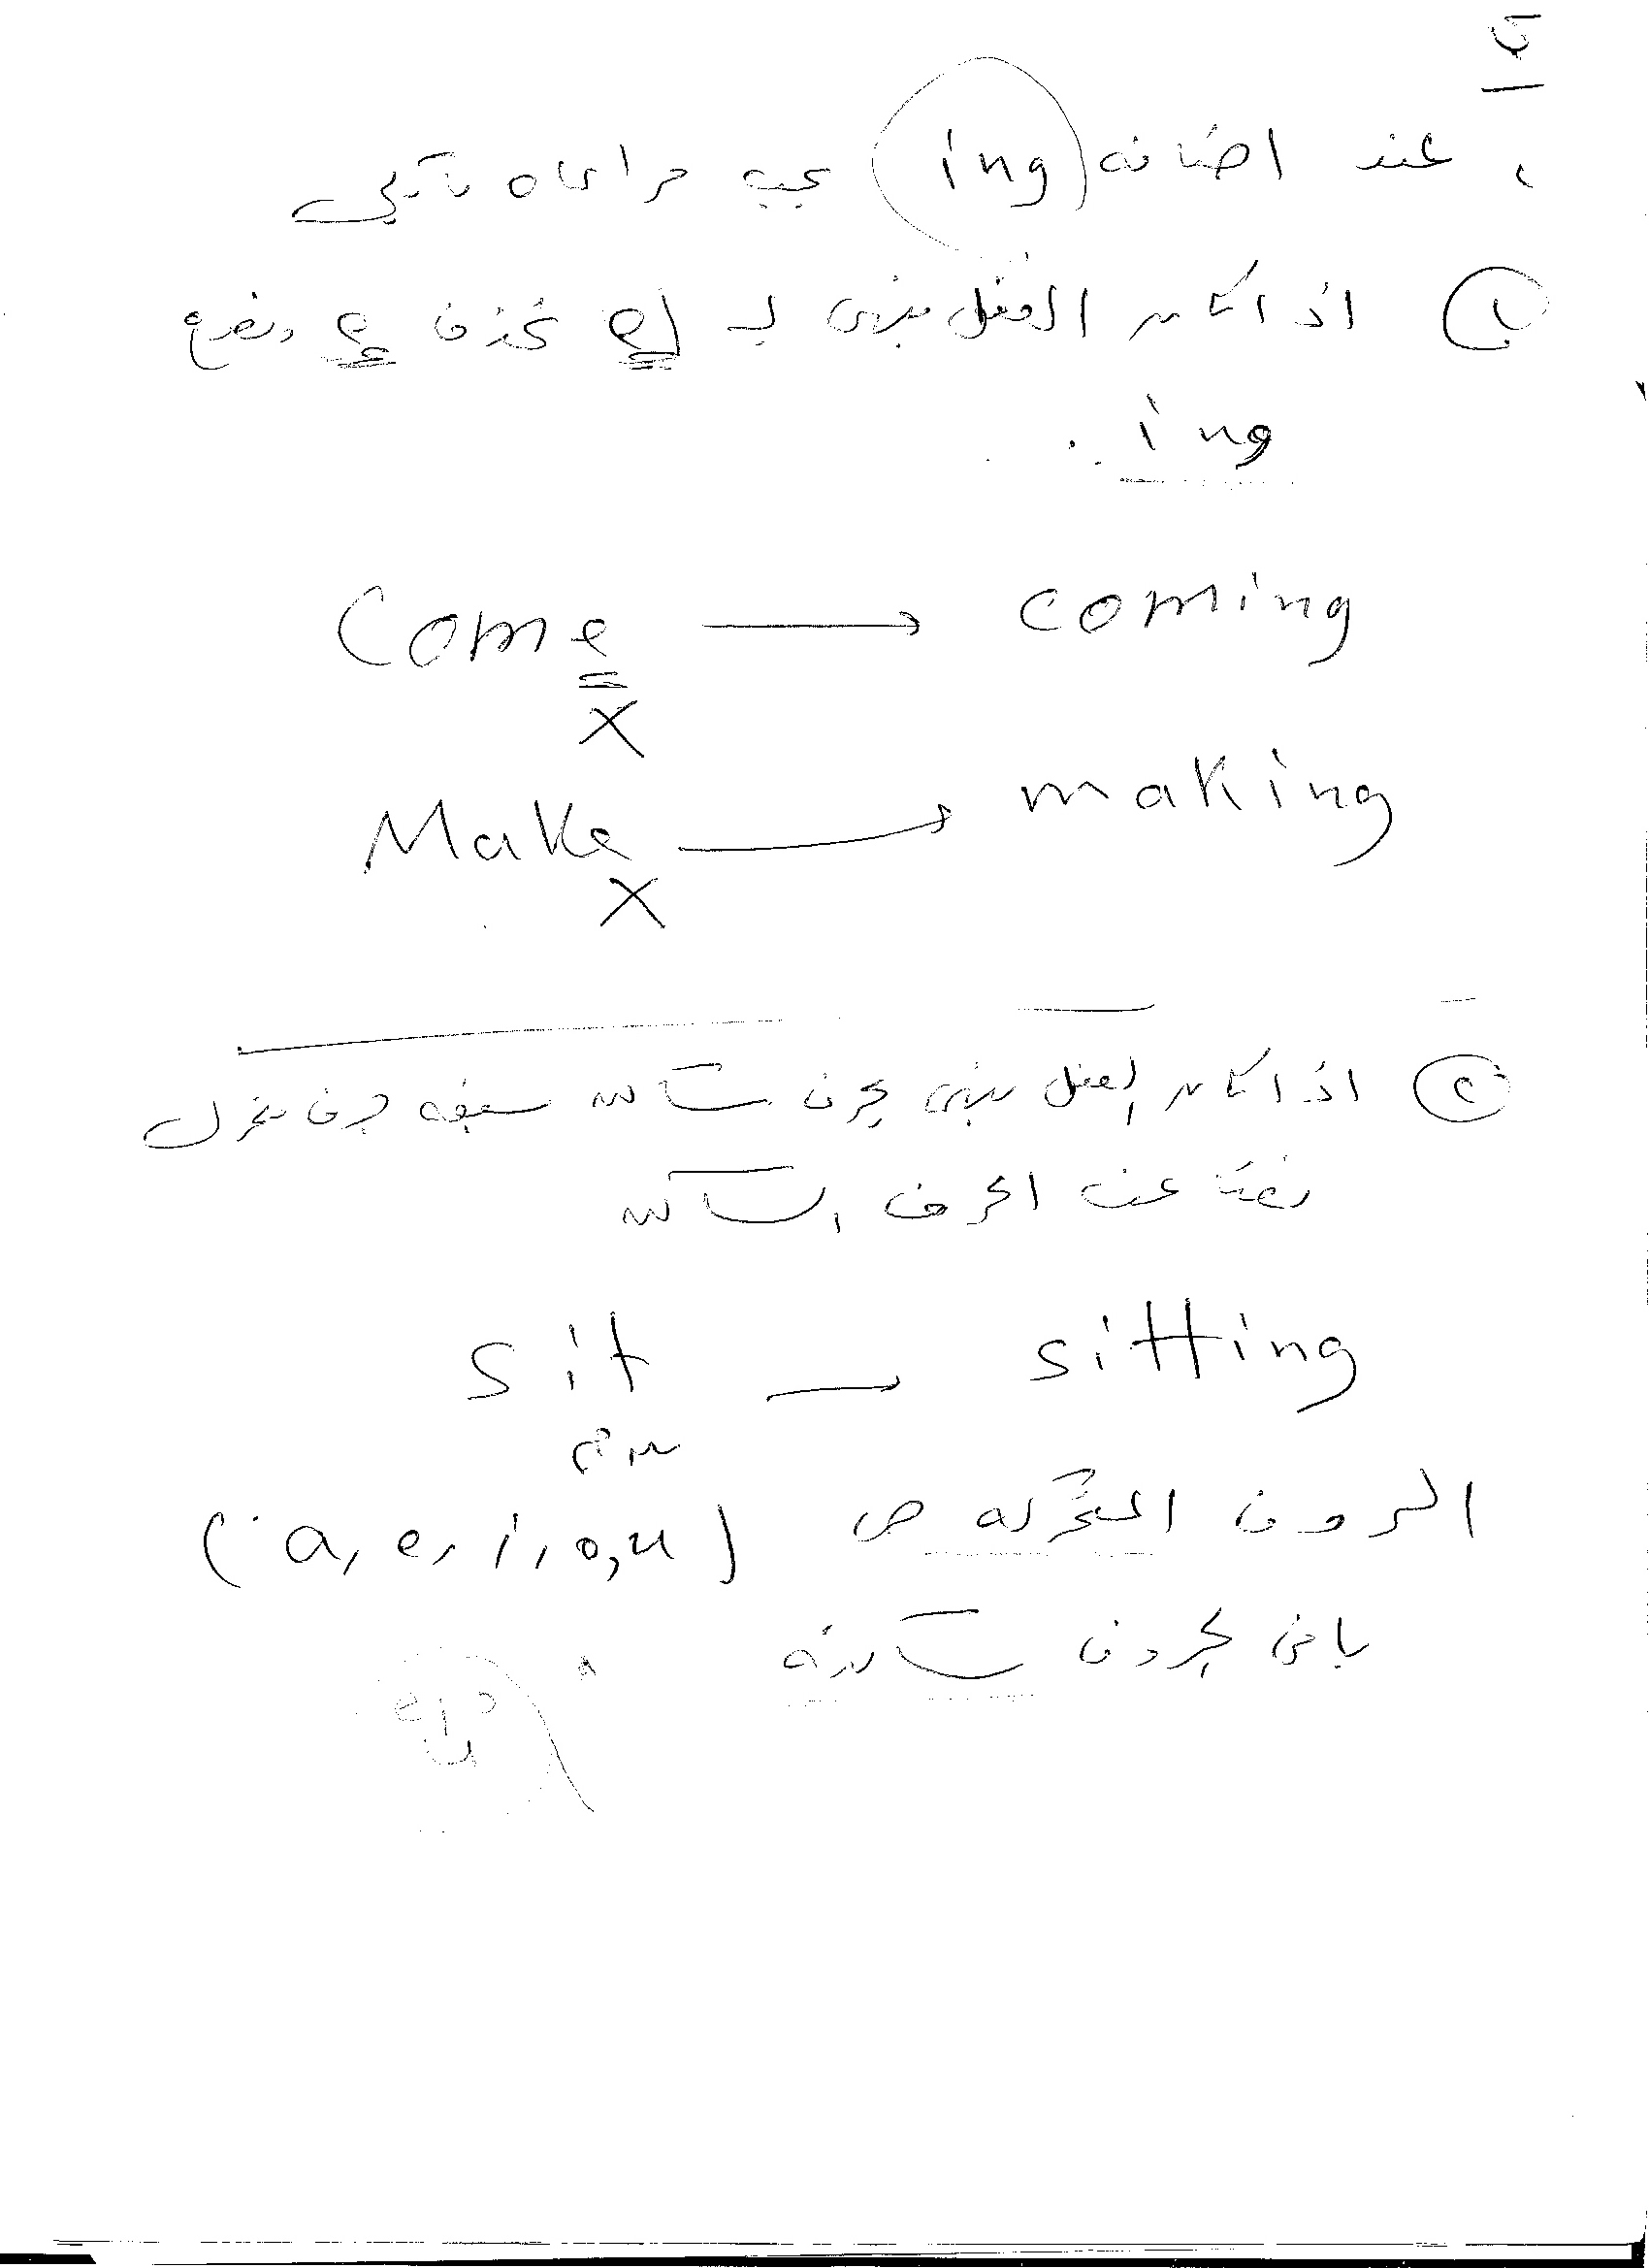 عند اضافه (ing) يجب مراعاه مايأتي
① اذا كان الفعل ينهى بـ (e) نحذف e ونضع
ing
Come → coming
X
Make → making
X
② اذا كان الفعل ينهى بحرف ساكن سبقه حرف متحرك
ضعنا عف الحرف الساكن
sit → sitting
م س
الحروف المتحركه هى (a, e, i, o, u)
باقى الحروف ساكنه